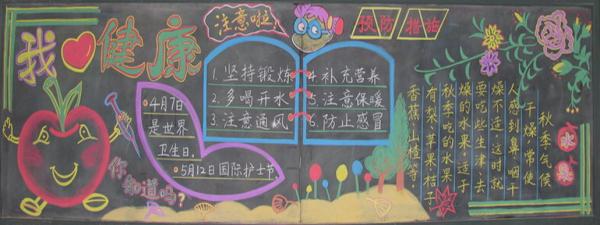 我健康
注意啦
预防措施
1.坚持锻炼
2.多喝开水
3.注意通风
4.补充营养
5.注意保暖
6.防止感冒
4月7日
是世界
卫生日。
5月12日国际护士节
你知道吗?
水果
秋季气候
干燥,常使
人感到鼻咽干
燥不适,这时就
要吃些生津、去
燥的水果,适于
秋季吃的水果
有梨、苹果、桔子
香蕉、山楂等。